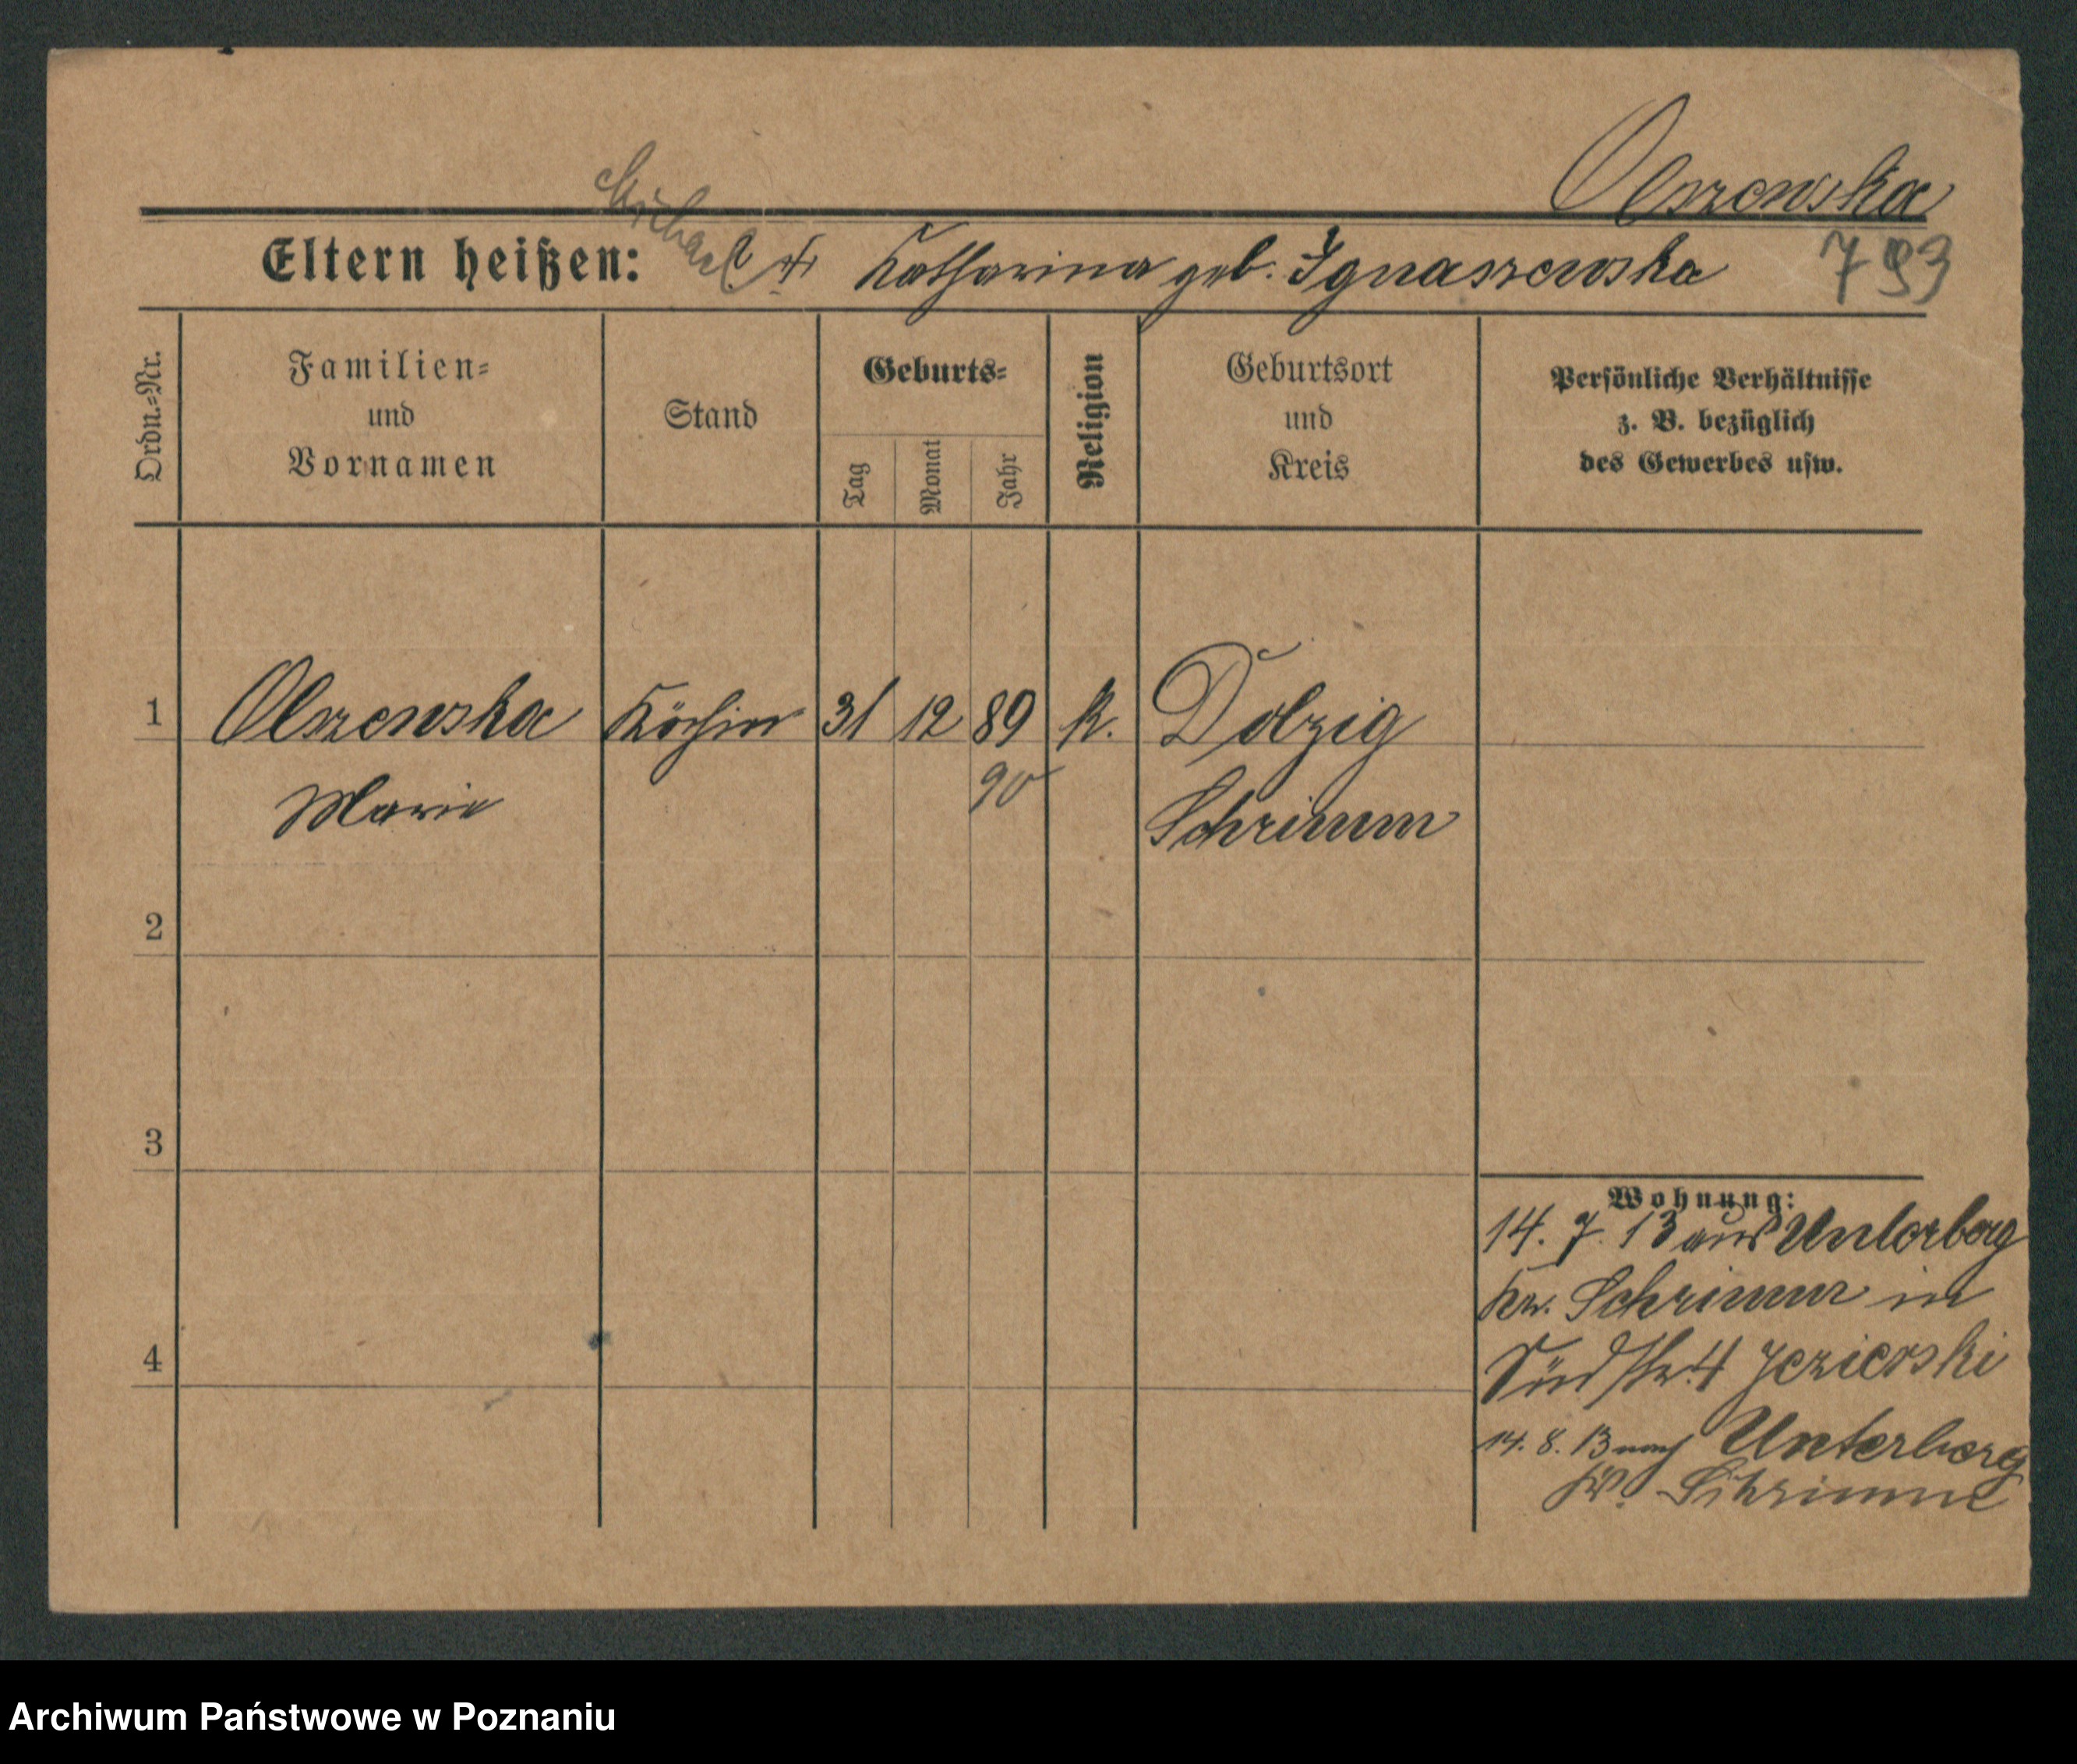 Olszewska
Michael
Eltern heißen: ? + Katharina geb. Ignaszewska 793
Ordn.-Nr.
Familien-
und
Vornamen
Stand
Geburts-
Tag
Monat
Jahr
Religion
Geburtsort
und
Kreis
Persönliche Verhältnisse
z. B. bezüglich
des Gewerbes usw.
1 Olszewska Köchin 31 12 89 K. Dolzig
Marie 90 Schrimm
2
3
4
Wohnung:
14. 7. 13 aus Unterberg
Kr. Schrimm in
Südstr. 4 Jezierski
14. 8. 13 nach Unterberg
Kr. Schrimm
Archiwum Państwowe w Poznaniu